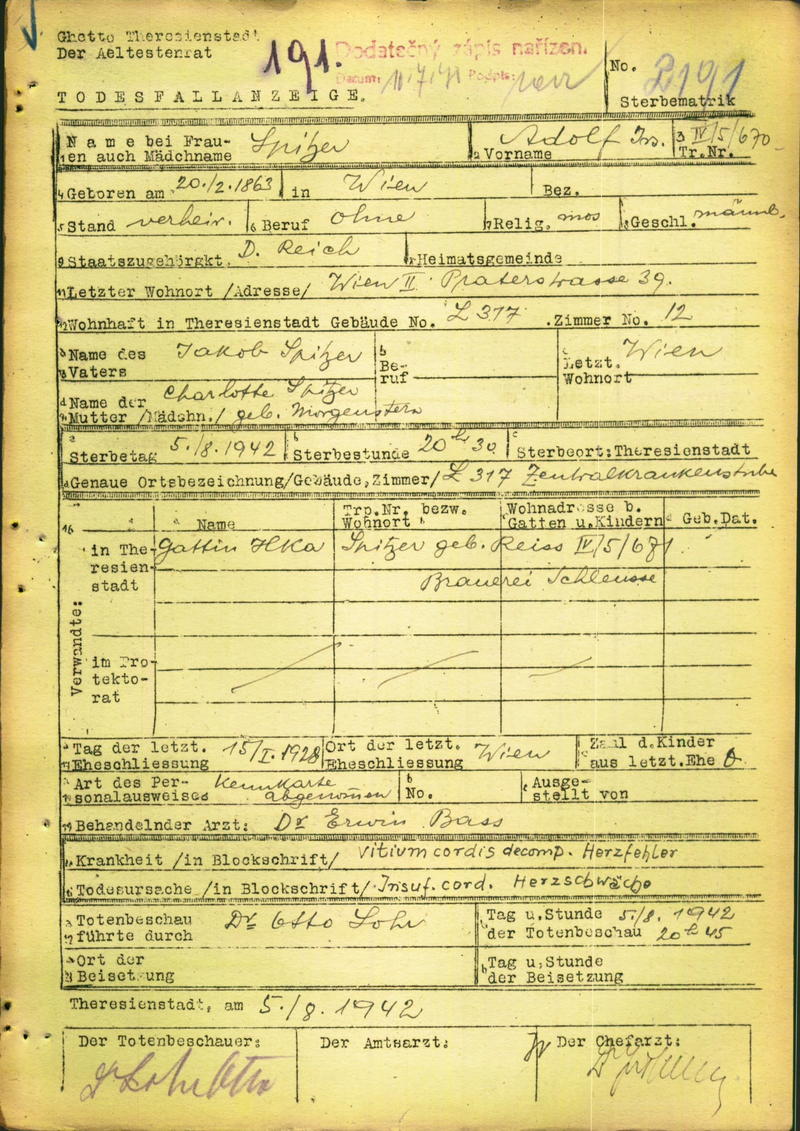 Ghetto Theresienstadt
Der Aeltestenrat
191.
Dodatečný zápis nařízen.
Datum: Podpis:
No. 2191
Sterbematrik
TODESFALLANZEIGE.
Name bei Frau- Spitzer
en auch Mädchname
Adolf Isr.
Vorname
IV/5/670
Tr.Nr.
Geboren am 20./2. 1863 in Wien Bez.
Stand verheir. Beruf ohne Relig. mos Geschl. männl.
Staatszugehörgkt. D. Reich Heimatsgemeinde
Letzter Wohnort /Adresse/ Wien II Praterstrasse 39.
Wohnhaft in Theresienstadt Gebäude No. L 317 .Zimmer No. 12
Name des Vaters Jakob Spitzer
Be-
ruf
Letzt. Wohnort Wien
Name der Charlotte Spitzer
Mutter /Mädchn./ geb. Morgenstern
Sterbetag 5./8. 1942 Sterbestunde 20h 30 Sterbeort: Theresienstadt
Genaue Ortsbezeichnung/Gebäude, Zimmer/ L 317 Zentralkrankenstube
Name
Trp.Nr. bezw.
Wohnort
Wohnadresse b.
Gatten u.Kindern
Geb.Dat.
Verwandte:
in The-
resien-
stadt
Gattin Ilka Spitzer geb. Reiss IV/5/671
Brauerei Schleusse
im Pro-
tekto-
rat
Tag der letzt. 15/I. 1928
Eheschliessung
Ort der letzt. Wien
Eheschliessung
Zahl d.Kinder
aus letzt.Ehe 0
Art des Per- Kennkarte
sonalausweises abgenommen
No.
Ausge-
stellt von
Behandelnder Arzt: Dr Erwin Bass
Krankheit /in Blockschrift/ Vitium cordis decomp. Herzfehler
Todesursache /in Blockschrift/ Insuf. cord. Herzschwäche
Totenbeschau Dr Otto Lohr
führte durch
Tag u.Stunde 5./8. 1942
der Totenbeschau 20h 45
Ort der
Beisetzung
Tag u.Stunde
der Beisetzung
Theresienstadt, am 5./8. 1942
Der Totenbeschauer:
Der Amtsarzt:
Der Chefarzt:
Dr Lohr Otto